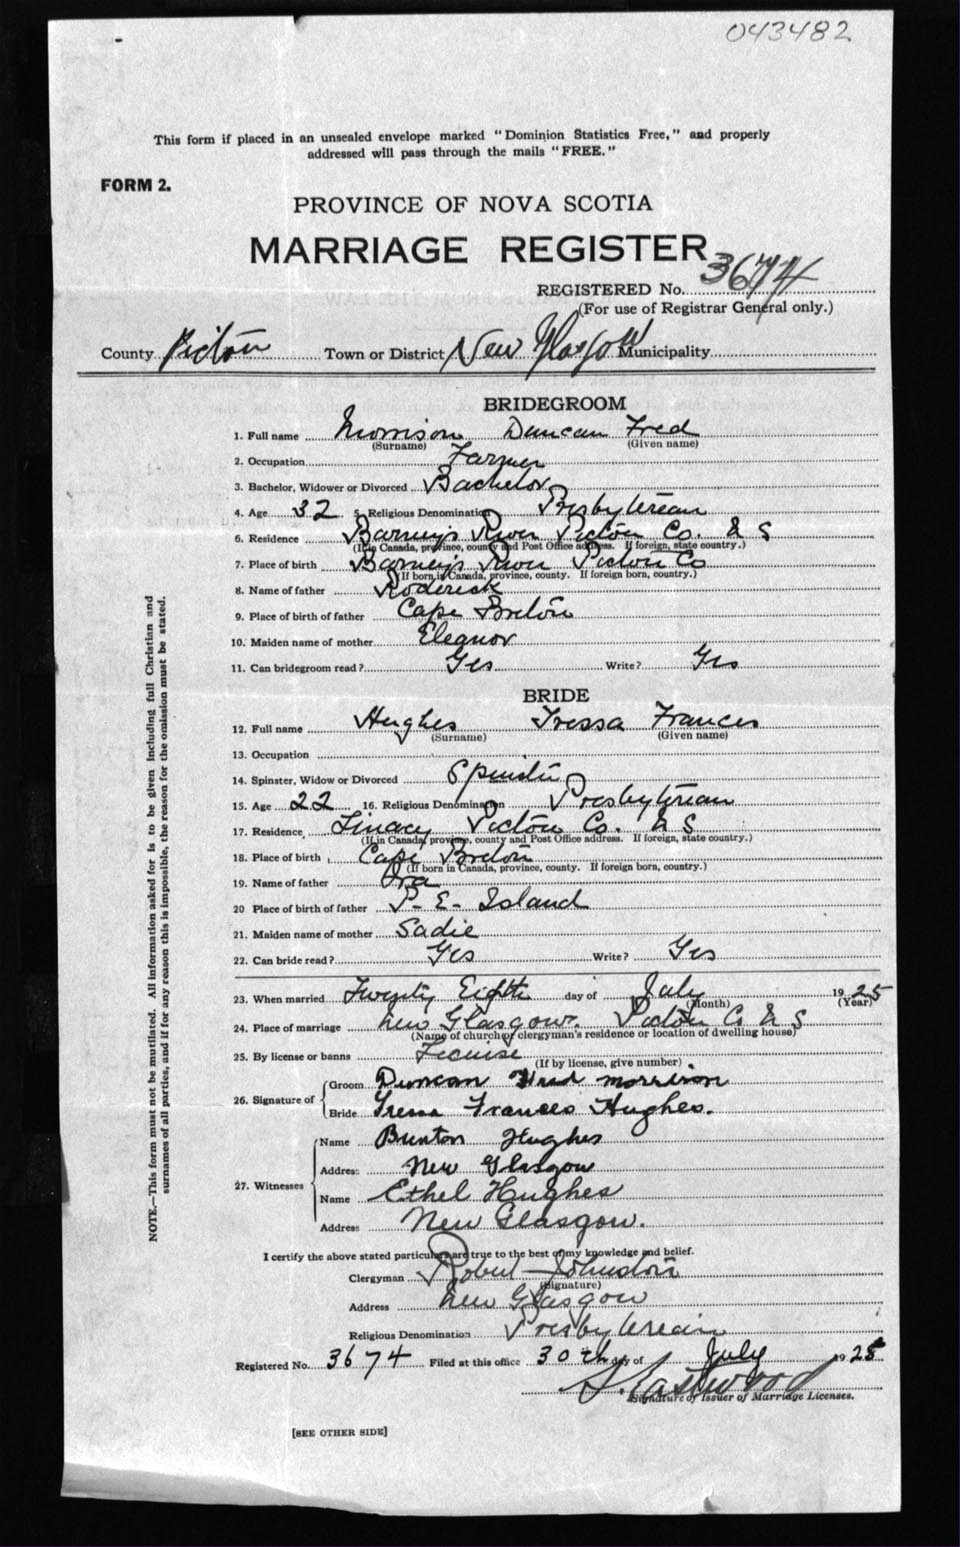 043482
This form if placed in an unsealed envelope marked "Dominion Statistics Free," and properly
addressed will pass through the mails "FREE."
FORM 2.
PROVINCE OF NOVA SCOTIA
MARRIAGE REGISTER
REGISTERED No. 3674
(For use of Registrar General only.)
County Pictou Town or District New Glasgow Municipality
BRIDEGROOM
1. Full name Morrison Duncan Fred
(Surname) (Given name)
2. Occupation Farmer
3. Bachelor, Widower or Divorced Bachelor
4. Age 32 5. Religious Denomination Presbyterian
6. Residence Barney's River Pictou Co. N S
(If in Canada, province, county and Post Office address. If foreign, state country.)
7. Place of birth Barney's River Pictou Co
(If born in Canada, province, county. If foreign born, country.)
8. Name of father Roderick
9. Place of birth of father Cape Breton
10. Maiden name of mother Eleanor
11. Can bridegroom read? Yes Write? Yes
BRIDE
12. Full name Hughes Tressa Frances
(Surname) (Given name)
13. Occupation
14. Spinster, Widow or Divorced Spinster
15. Age 22 16. Religious Denomination Presbyterian
17. Residence Linacy Pictou Co. N S
(If in Canada, province, county and Post Office address. If foreign, state country.)
18. Place of birth Cape Breton
(If born in Canada, province, county. If foreign born, country.)
19. Name of father Ora
20 Place of birth of father P. E. Island
21. Maiden name of mother Sadie
22. Can bride read? Yes Write? Yes
23. When married Twenty Eighth day of July 1925
(Month) (Year)
24. Place of marriage New Glasgow. Pictou Co N S
(Name of church, clergyman's residence or location of dwelling house)
25. By license or banns License
(If by license, give number)
26. Signature of
Groom Duncan Fred Morrison
Bride Tressa Frances Hughes.
27. Witnesses
Name Burton Hughes
Address New Glasgow
Name Ethel Hughes
Address New Glasgow.
I certify the above stated particulars are true to the best of my knowledge and belief.
Clergyman Robert Johnston
(Signature)
Address New Glasgow
Religious Denomination Presbyterian
Registered No. 3674 Filed at this office 30th day of July 1925
Signature of Issuer of Marriage Licenses.
[SEE OTHER SIDE]
NOTE.—This form must not be mutilated. All information asked for is to be given including full Christian and
surnames of all parties, and if for any reason this is impossible, the reason for the omission must be stated.